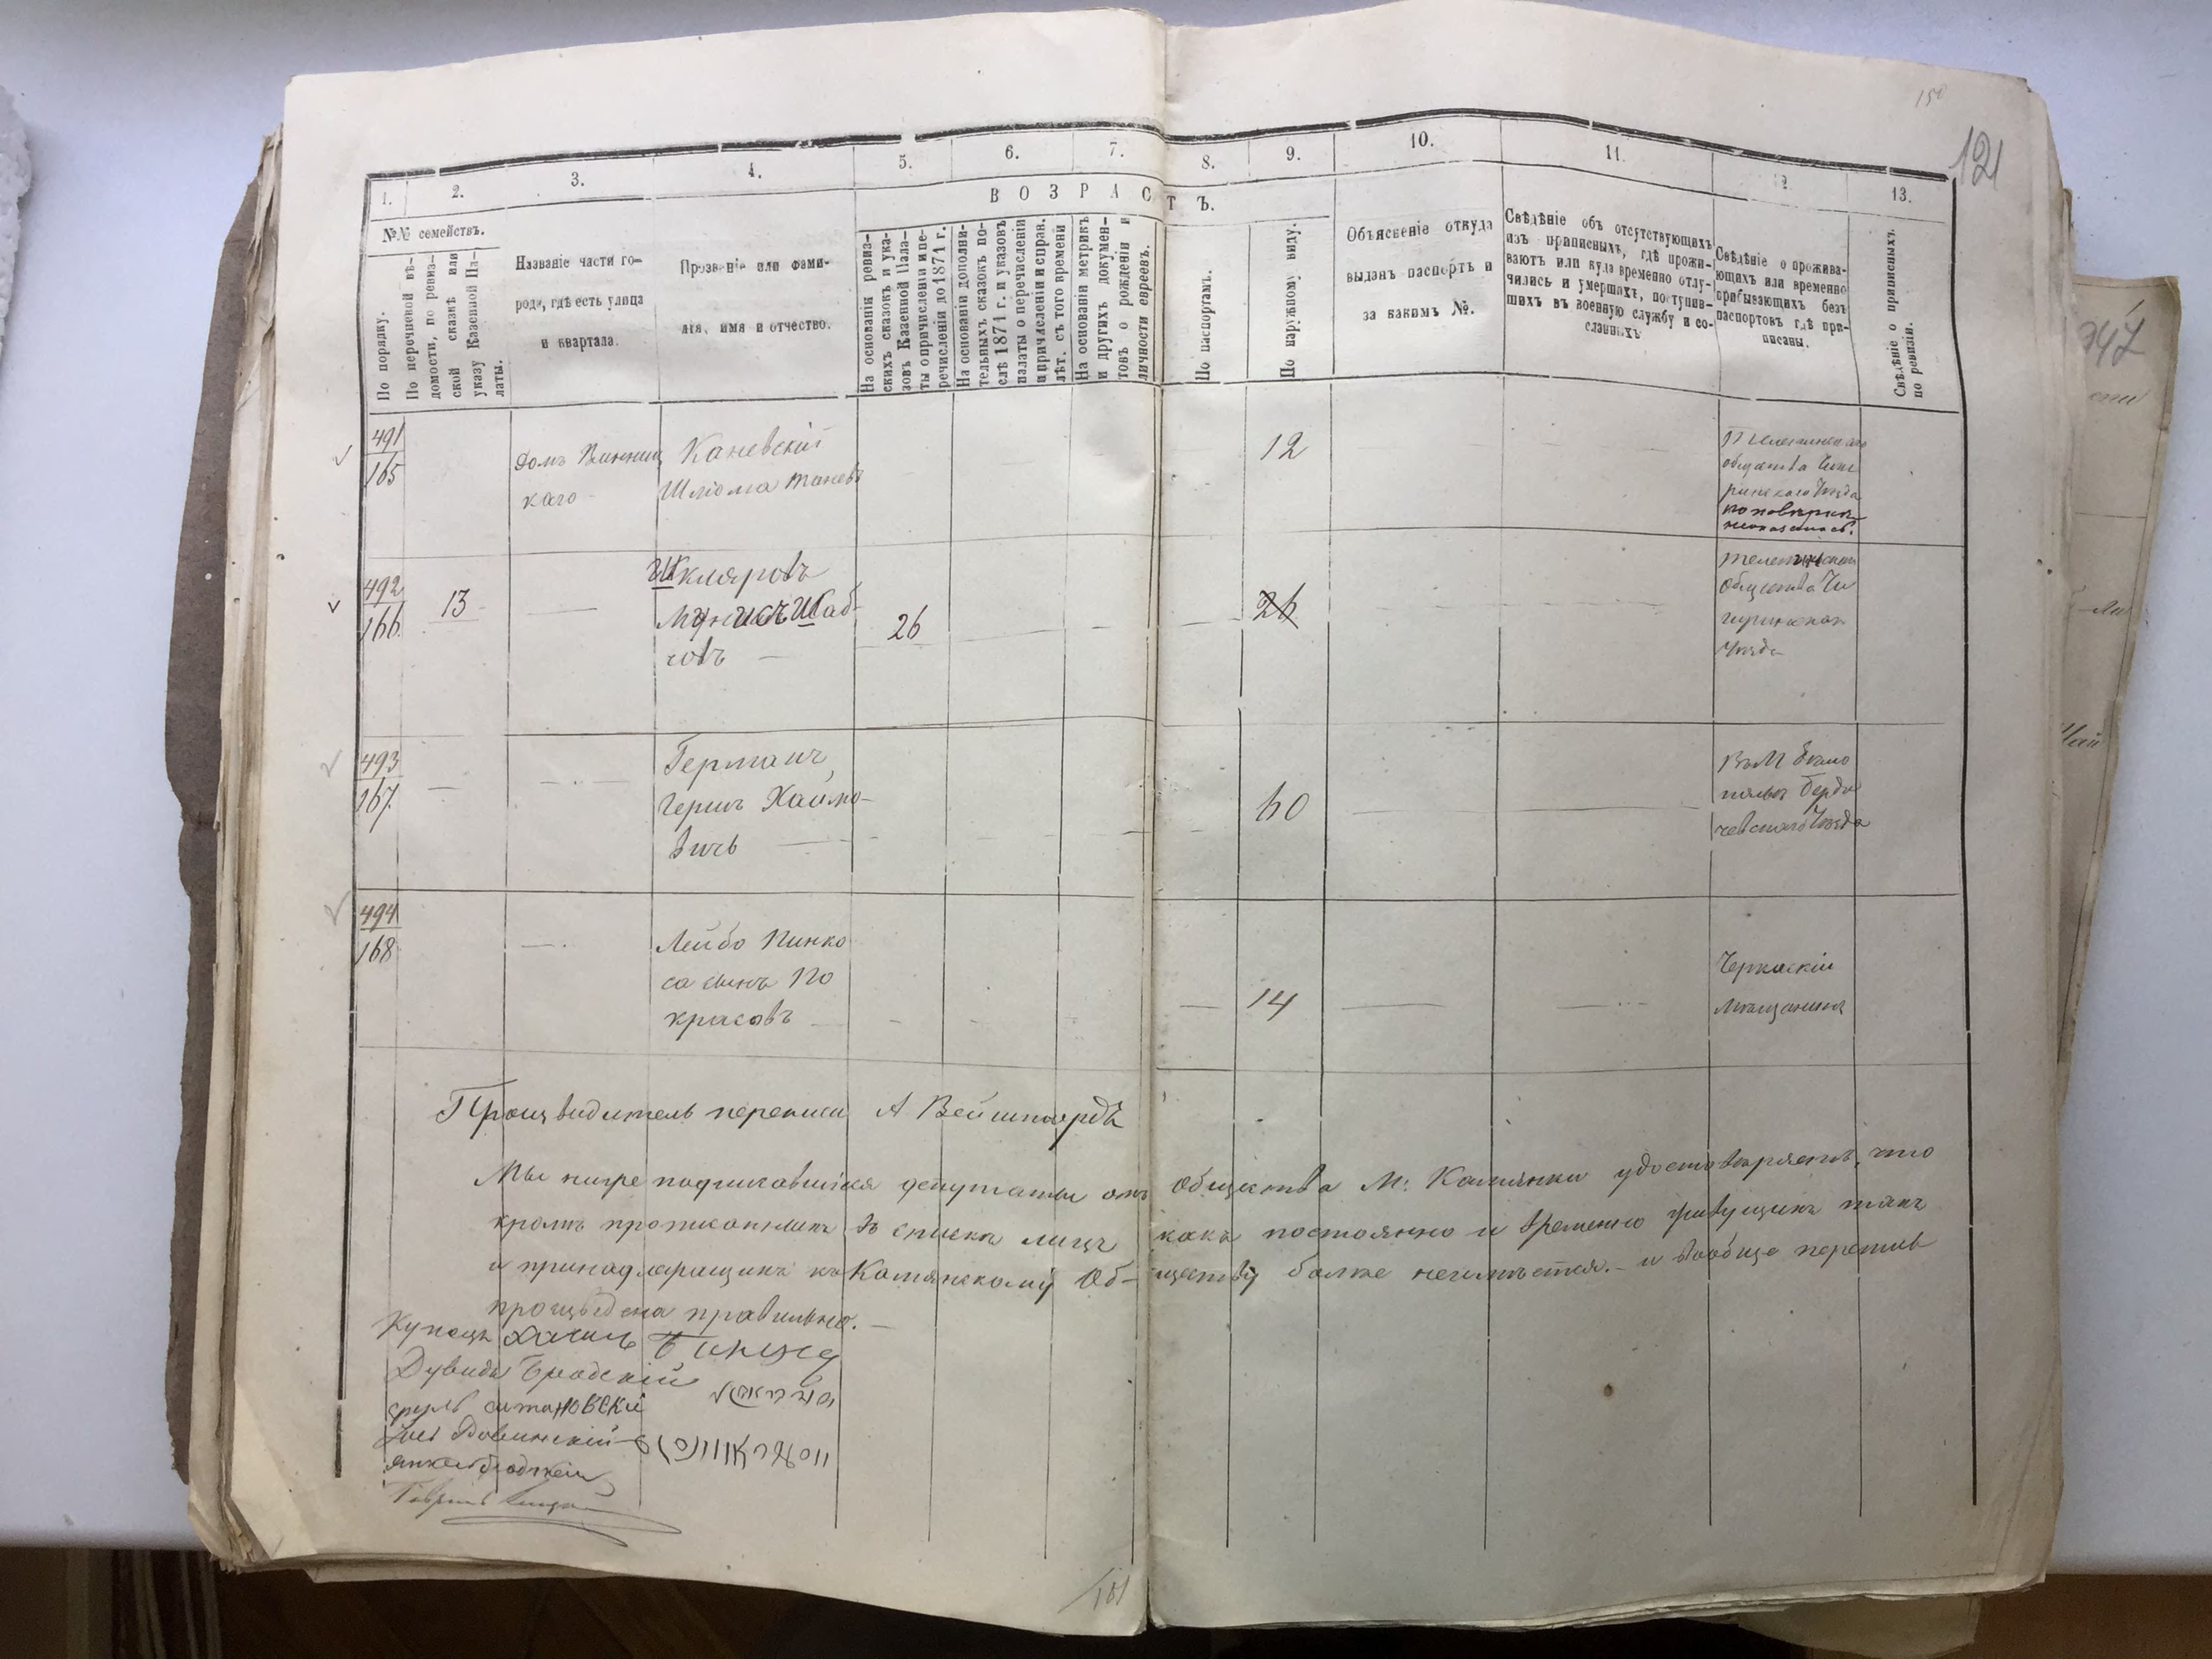 150
121
1.
2.
3.
4.
5.
6.
7.
8.
9.
10.
11.
13.
№№ семействъ.
ВОЗРАСТЪ.
По порядку.
По перечневой вѣ-
домости, по ревиз-
ской сказкѣ или
указу Казенной Па-
латы.
Названіе части го-
рода, гдѣ есть улица
и квартала.
Прозваніе или фами-
лія, имя и отчество.
На основаніи ревиз-
скихъ сказокъ и ука-
зовъ Казенной Пала-
ты о причисленіи и пе-
речисленіи до 1871 г.
На основаніи дополни-
тельныхъ сказокъ по-
слѣ 1871 г. и указовъ
палаты о перечисленіи
и причисленіи и справ.
лѣт. съ того времени
На основаніи метрикъ
и другихъ докумен-
товъ о рожденіи и
личности евреевъ.
По паспортамъ.
По наружному виду.
Объясненіе откуда
выданъ паспортъ и
за какимъ №.
Свѣдѣніе объ отсутствующихъ
изъ приписныхъ, гдѣ прожи-
ваютъ или куда временно отлу-
чились и умершихъ, поступив-
шихъ въ военную службу и со-
сланныхъ
Свѣдѣніе о прожива-
ющихъ или временно
прибывающихъ безъ
паспортовъ гдѣ при-
писаны.
Свѣдѣніе о приписныхъ
по ревизіи.
491
165
домъ Винниц
каго
Каневскій
Шліома
12
общества Чиги
ринскаго Уѣзда
492
166
13
Шкляровъ
Шаб-
совъ
26
26
Общества Чи
гиринскаго
Уѣзда
493
167
Германъ
Гершъ Хаимо-
вичъ
60
Въ М
Берди
чевскаго Уѣзда
494
168
Лейбо Пинко
са сынъ По
красовъ
14
Черкаскій
мѣщанинъ
Произвидитель переписи А Вейштордъ
Мы ниже подписавшіяся депутаты отъ Общества М: Камянки удостовѣряемъ, что
кромѣ прописанныхъ въ спискѣ лицъ какъ постоянно и временно живущихъ такъ
и принадлежащихъ къ Камянскому Об-ществу болѣе неимѣется. - и вообще перепись
произведена правильно. -
Купецъ
Дувидъ Бродскій
181